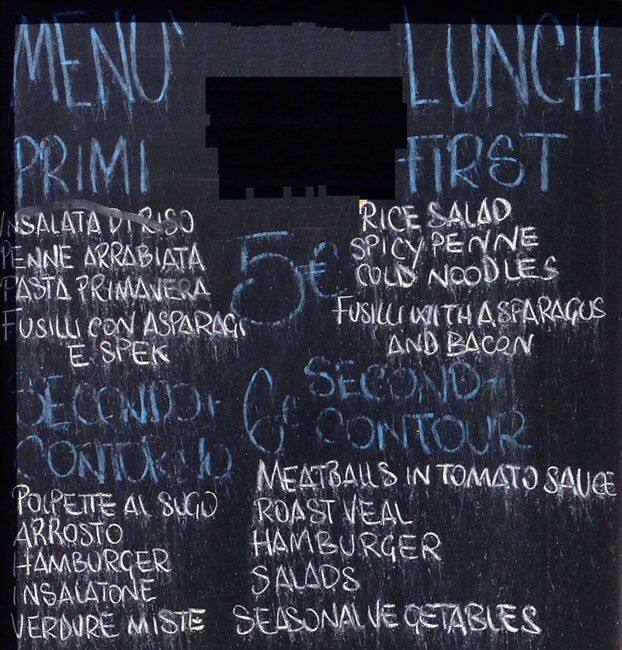 MENU' LUNCH
PRIMI FIRST
INSALATA DI RISO
PENNE ARRABIATA
PASTA PRIMAVERA
FUSILLI CON ASPARAGI
E SPEK
5€
RICE SALAD
SPICY PENNE
COLD NOODLES
FUSILLI WITH ASPARAGUS
AND BACON
SECONDO+
CONTORNO
6€
SECOND+
CONTOUR
POLPETTE AL SUGO
ARROSTO
HAMBURGER
INSALATONE
VERDURE MISTE
MEATBALLS IN TOMATO SAUCE
ROAST VEAL
HAMBURGER
SALADS
SEASONAL VEGETABLES